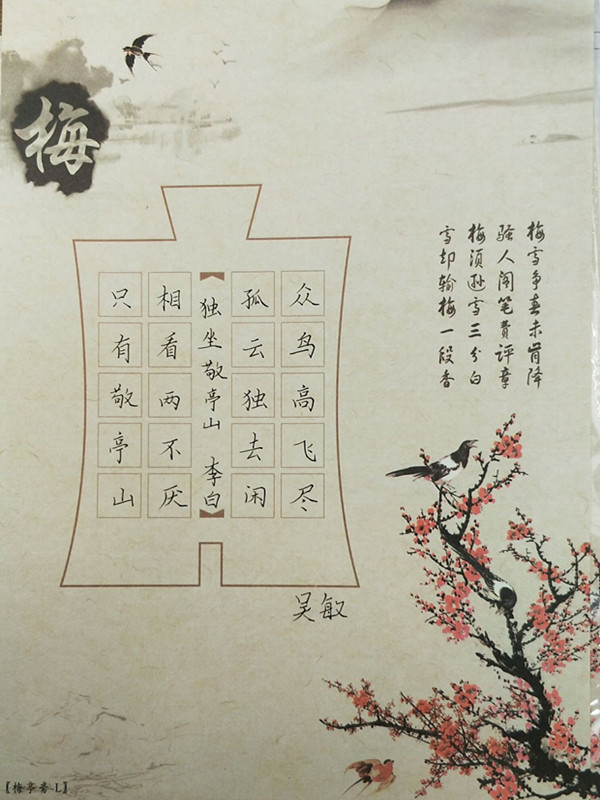 梅
梅雪争春未肯降
骚人阁笔费评章
梅须逊雪三分白
雪却输梅一段香
众鸟高飞尽
孤云独去闲
独坐敬亭山 李白
相看两不厌
只有敬亭山
吴敏
【梅亭香-L】